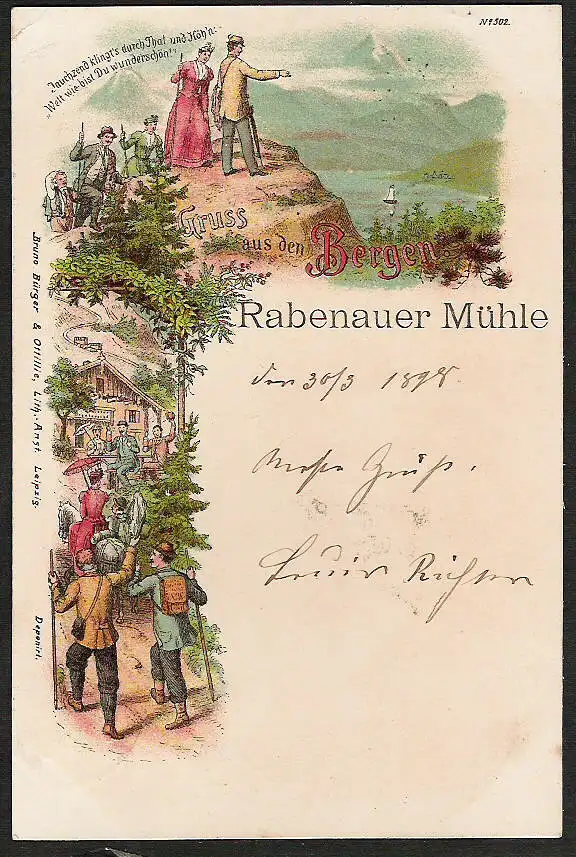 No 502.
Jauchzend klingt's durch Thal und Höh'n:
"Welt wie bist Du wunderschön!"
Gruss
aus den
Bergen
Rabenauer Mühle
den 30/3 1898.
Gruß.
Louis Richter
Bruno Bürger & Ottillie, Lith. Anst. Leipzig.
Deponirt.